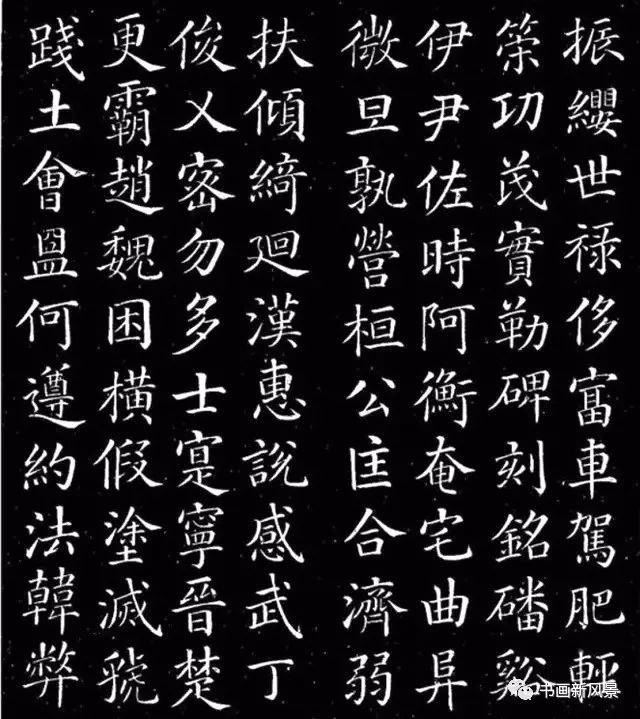 振纓世禄侈富車駕肥輕
策功茂實勒碑刻銘磻谿
伊尹佐時阿衡奄宅曲阜
微旦孰營桓公匡合濟弱
扶傾綺廻漢惠說感武丁
俊乂密勿多士寔寧晉楚
更霸趙魏困橫假塗滅虢
踐土會盟何遵約法韓弊
书画新风景